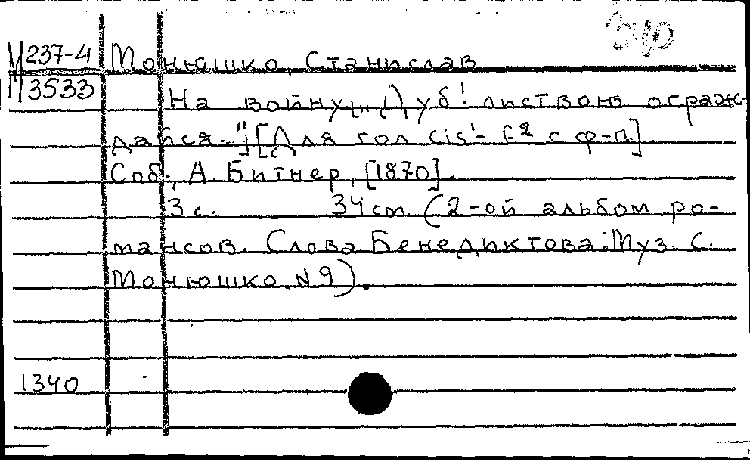 М 237-4
М 3533
Монюшко, Станислав
На войну („Дуб! листвою ограж-
дайся..") [Для гол. cis¹- е² с ф-п.]
Спб., А. Битнер, [1870].
3 с. 34 cm. (2-ой альбом ро-
мансов. Слова Бенедиктова. Муз. С.
Монюшко. N 9).
1340